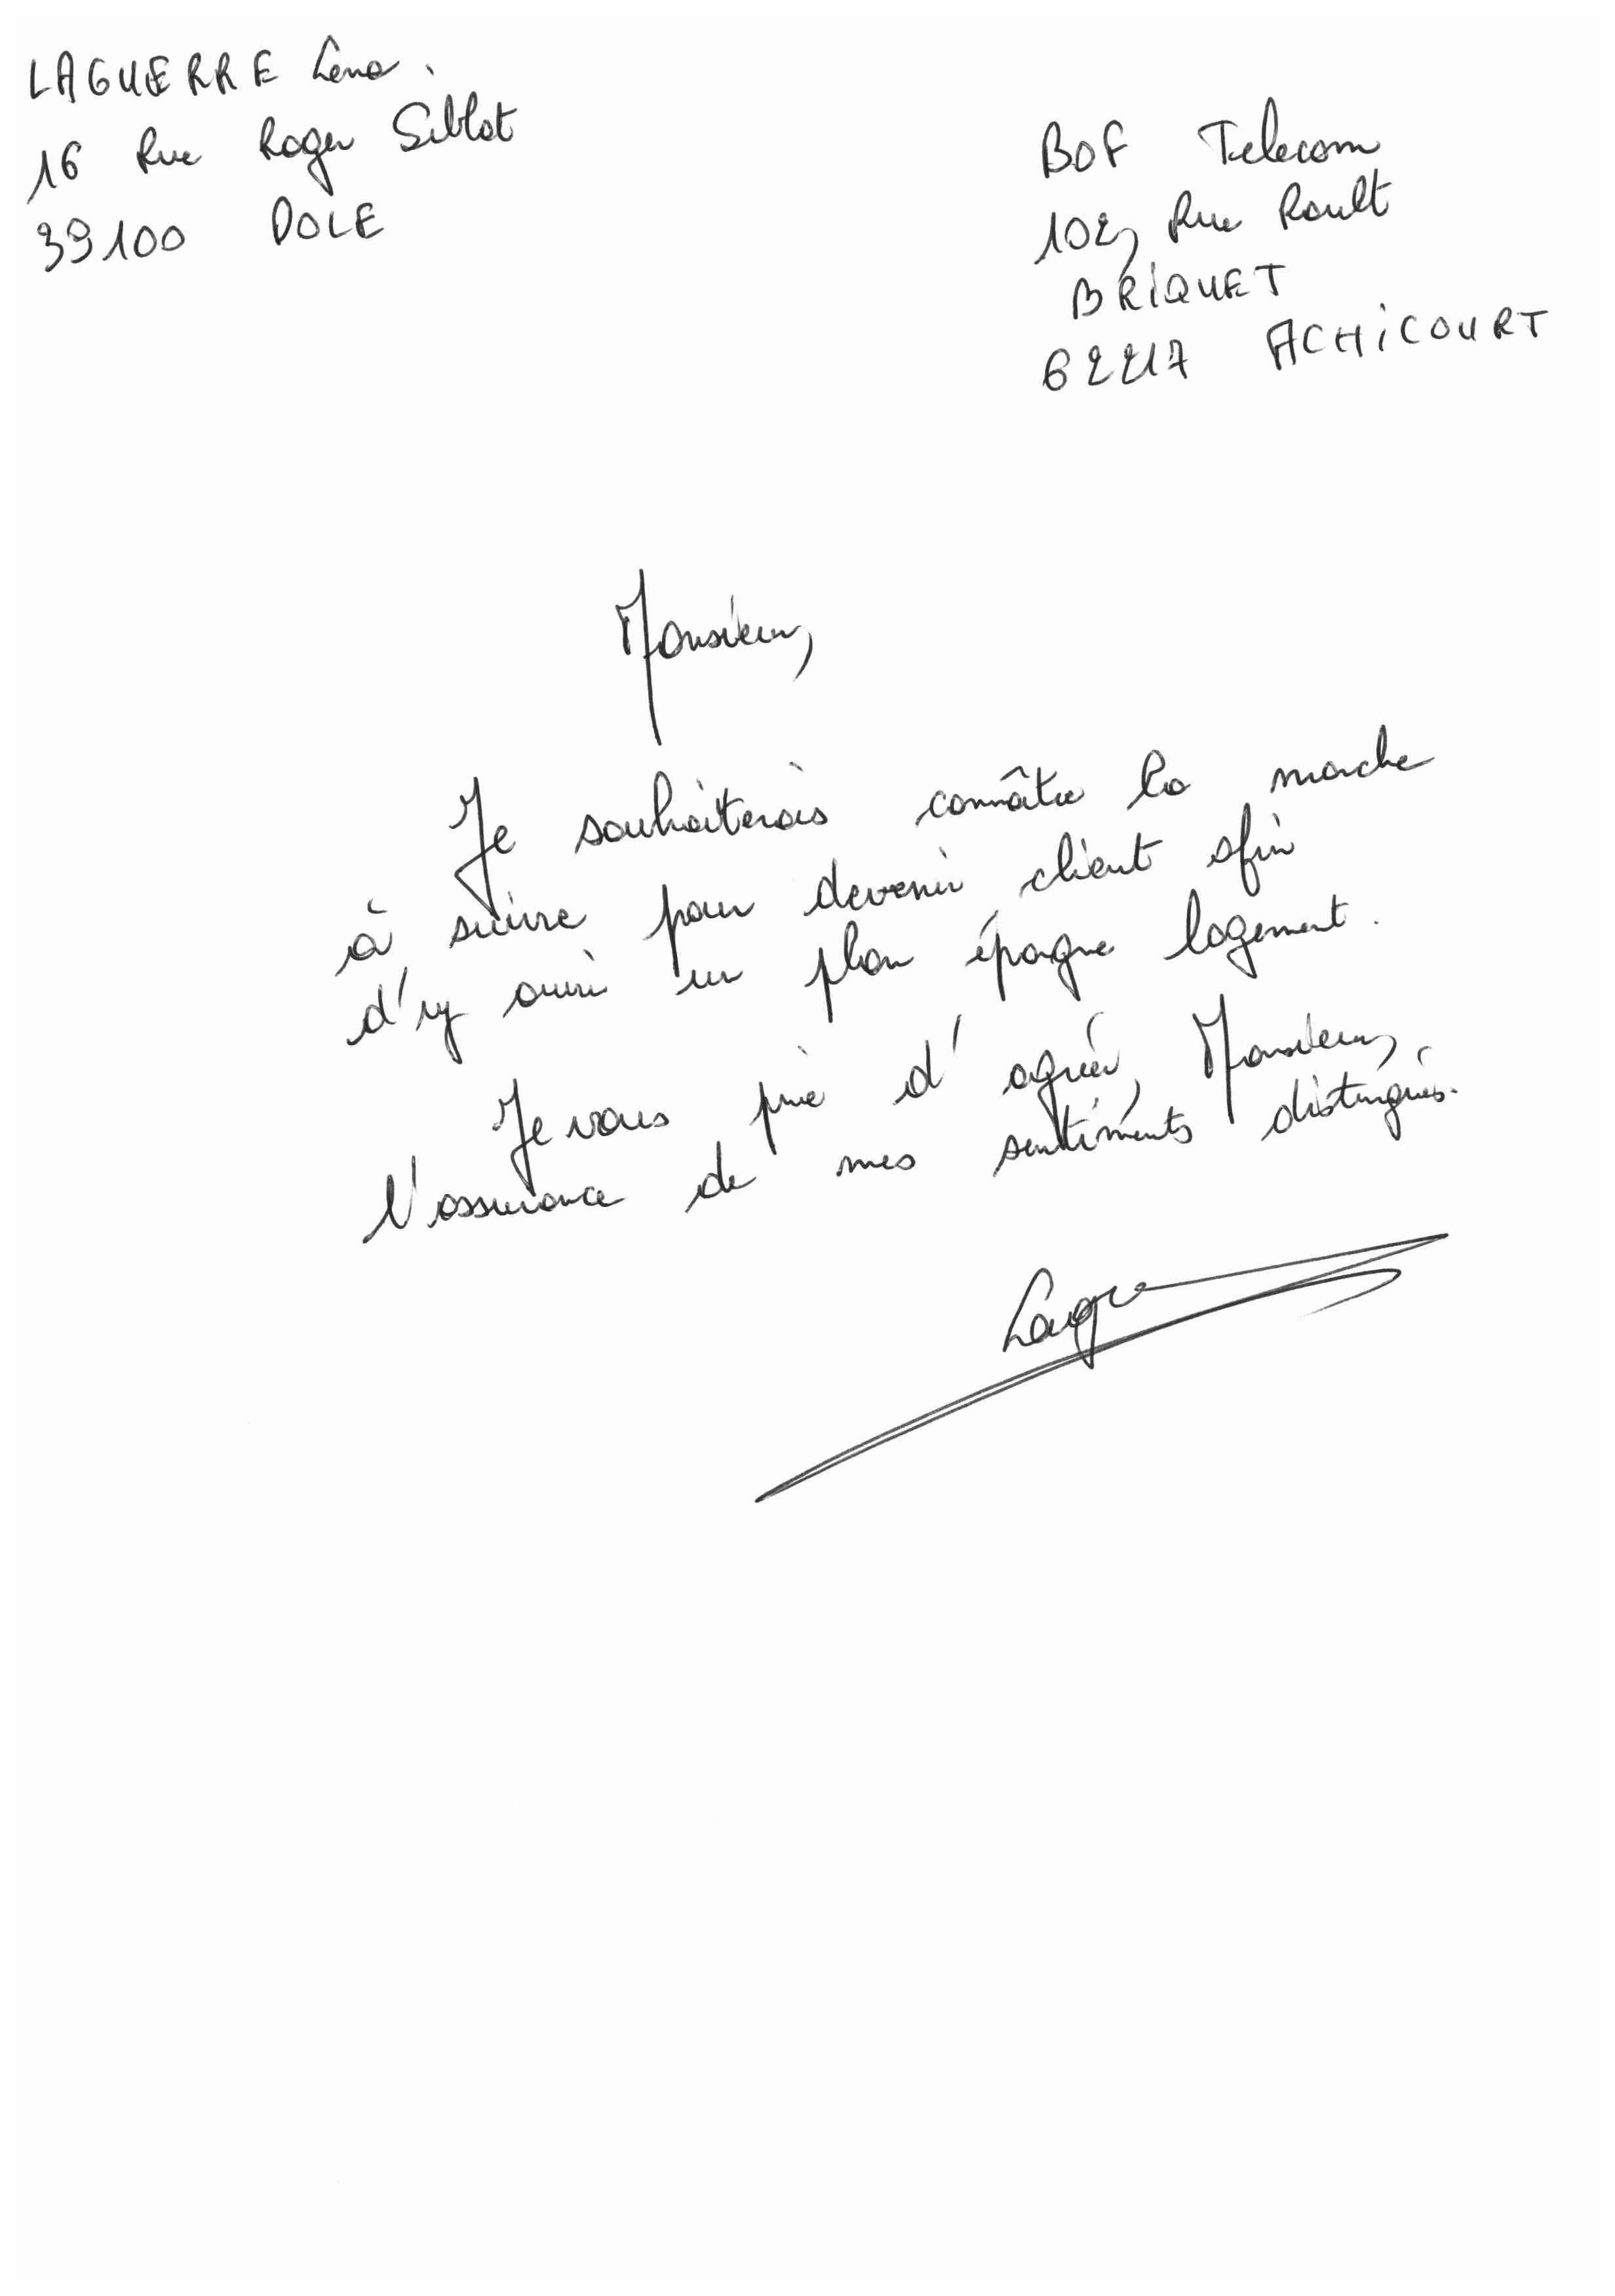 LAGUERRE Lena.
16 Rue Roger Siblot
39100 DOLE
BOF Telecom
102, Rue Roult
BRIQUET
62217 ACHICOURT
Monsieur,
Je souhaiterais connaître la marche
à suivre pour devenir client afin
d'y ouvrir un plan épargne logement.
Je vous prie d'agréer, Monsieur,
l'assurance de mes sentiments distingués.